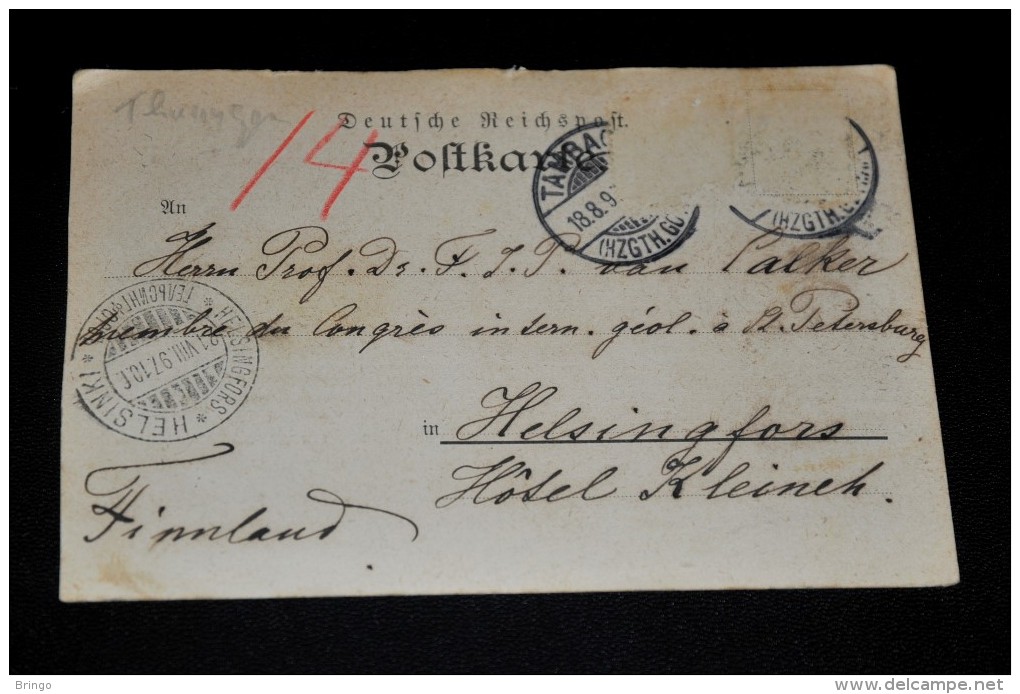 Deutsche Reichspost.
14
Postkarte
An
TAMBAC
18.8.9
(HZGTH. GO
(HZGTH. G
Herrn Prof. Dr. F. J. P. van Calker
membre du Congrès intern. géol. à St. Petersburg
HELSINGFORS * HELSINKI * ГЕЛЬСИНГФОРС *
21.VIII.97.10
in Helsingfors
Hôtel Kleineh.
Finnland
Bringo
delcampe.net